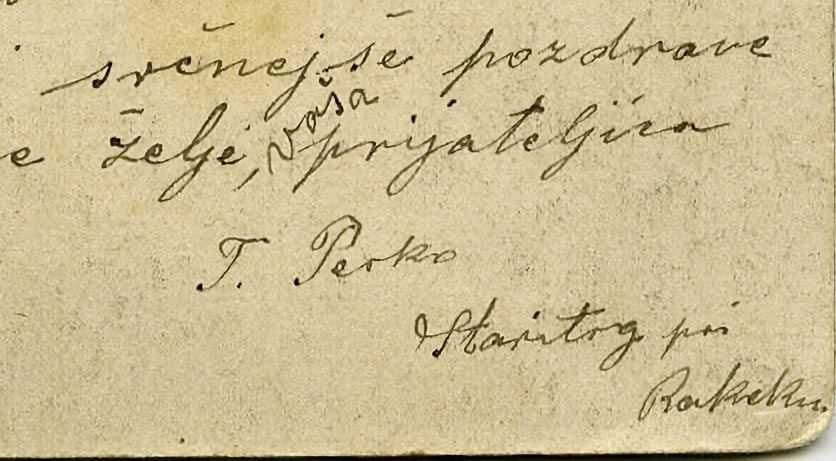 srčnejše pozdrave
e želje, vaša prijateljica
T. Perko
Staritrg pri
Rakeku.